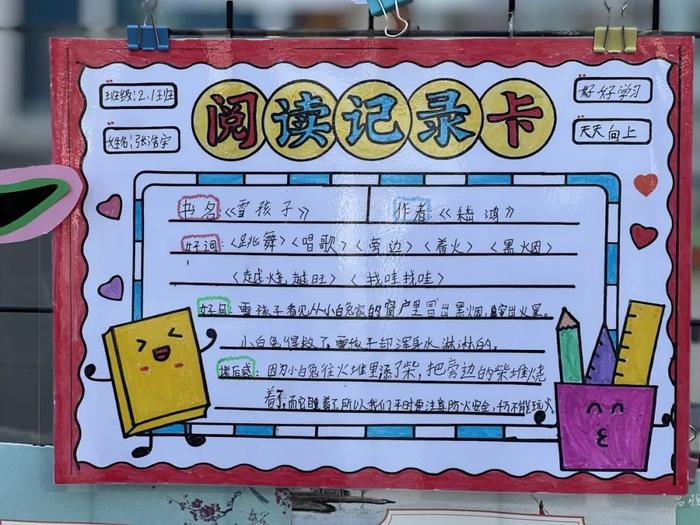 班级:2.1班
姓名:张浩宇
阅读记录卡
好好学习
天天向上
书名《雪孩子》 作者《嵇鸿》
好词:〈跳舞〉〈唱歌〉〈旁边〉〈着火〉〈黑烟〉
〈越烧越旺〉〈找哇找哇〉
好句:雪孩子看见从小白兔家的窗户里冒出黑烟,冒出火星。
小白兔得救了雪孩子却浑身水淋淋的。
读后感:因为小白兔往火堆里添了柴,把旁边的柴堆烧
着了,而它睡着了所以我们平时要注意防火安全,切不能玩火